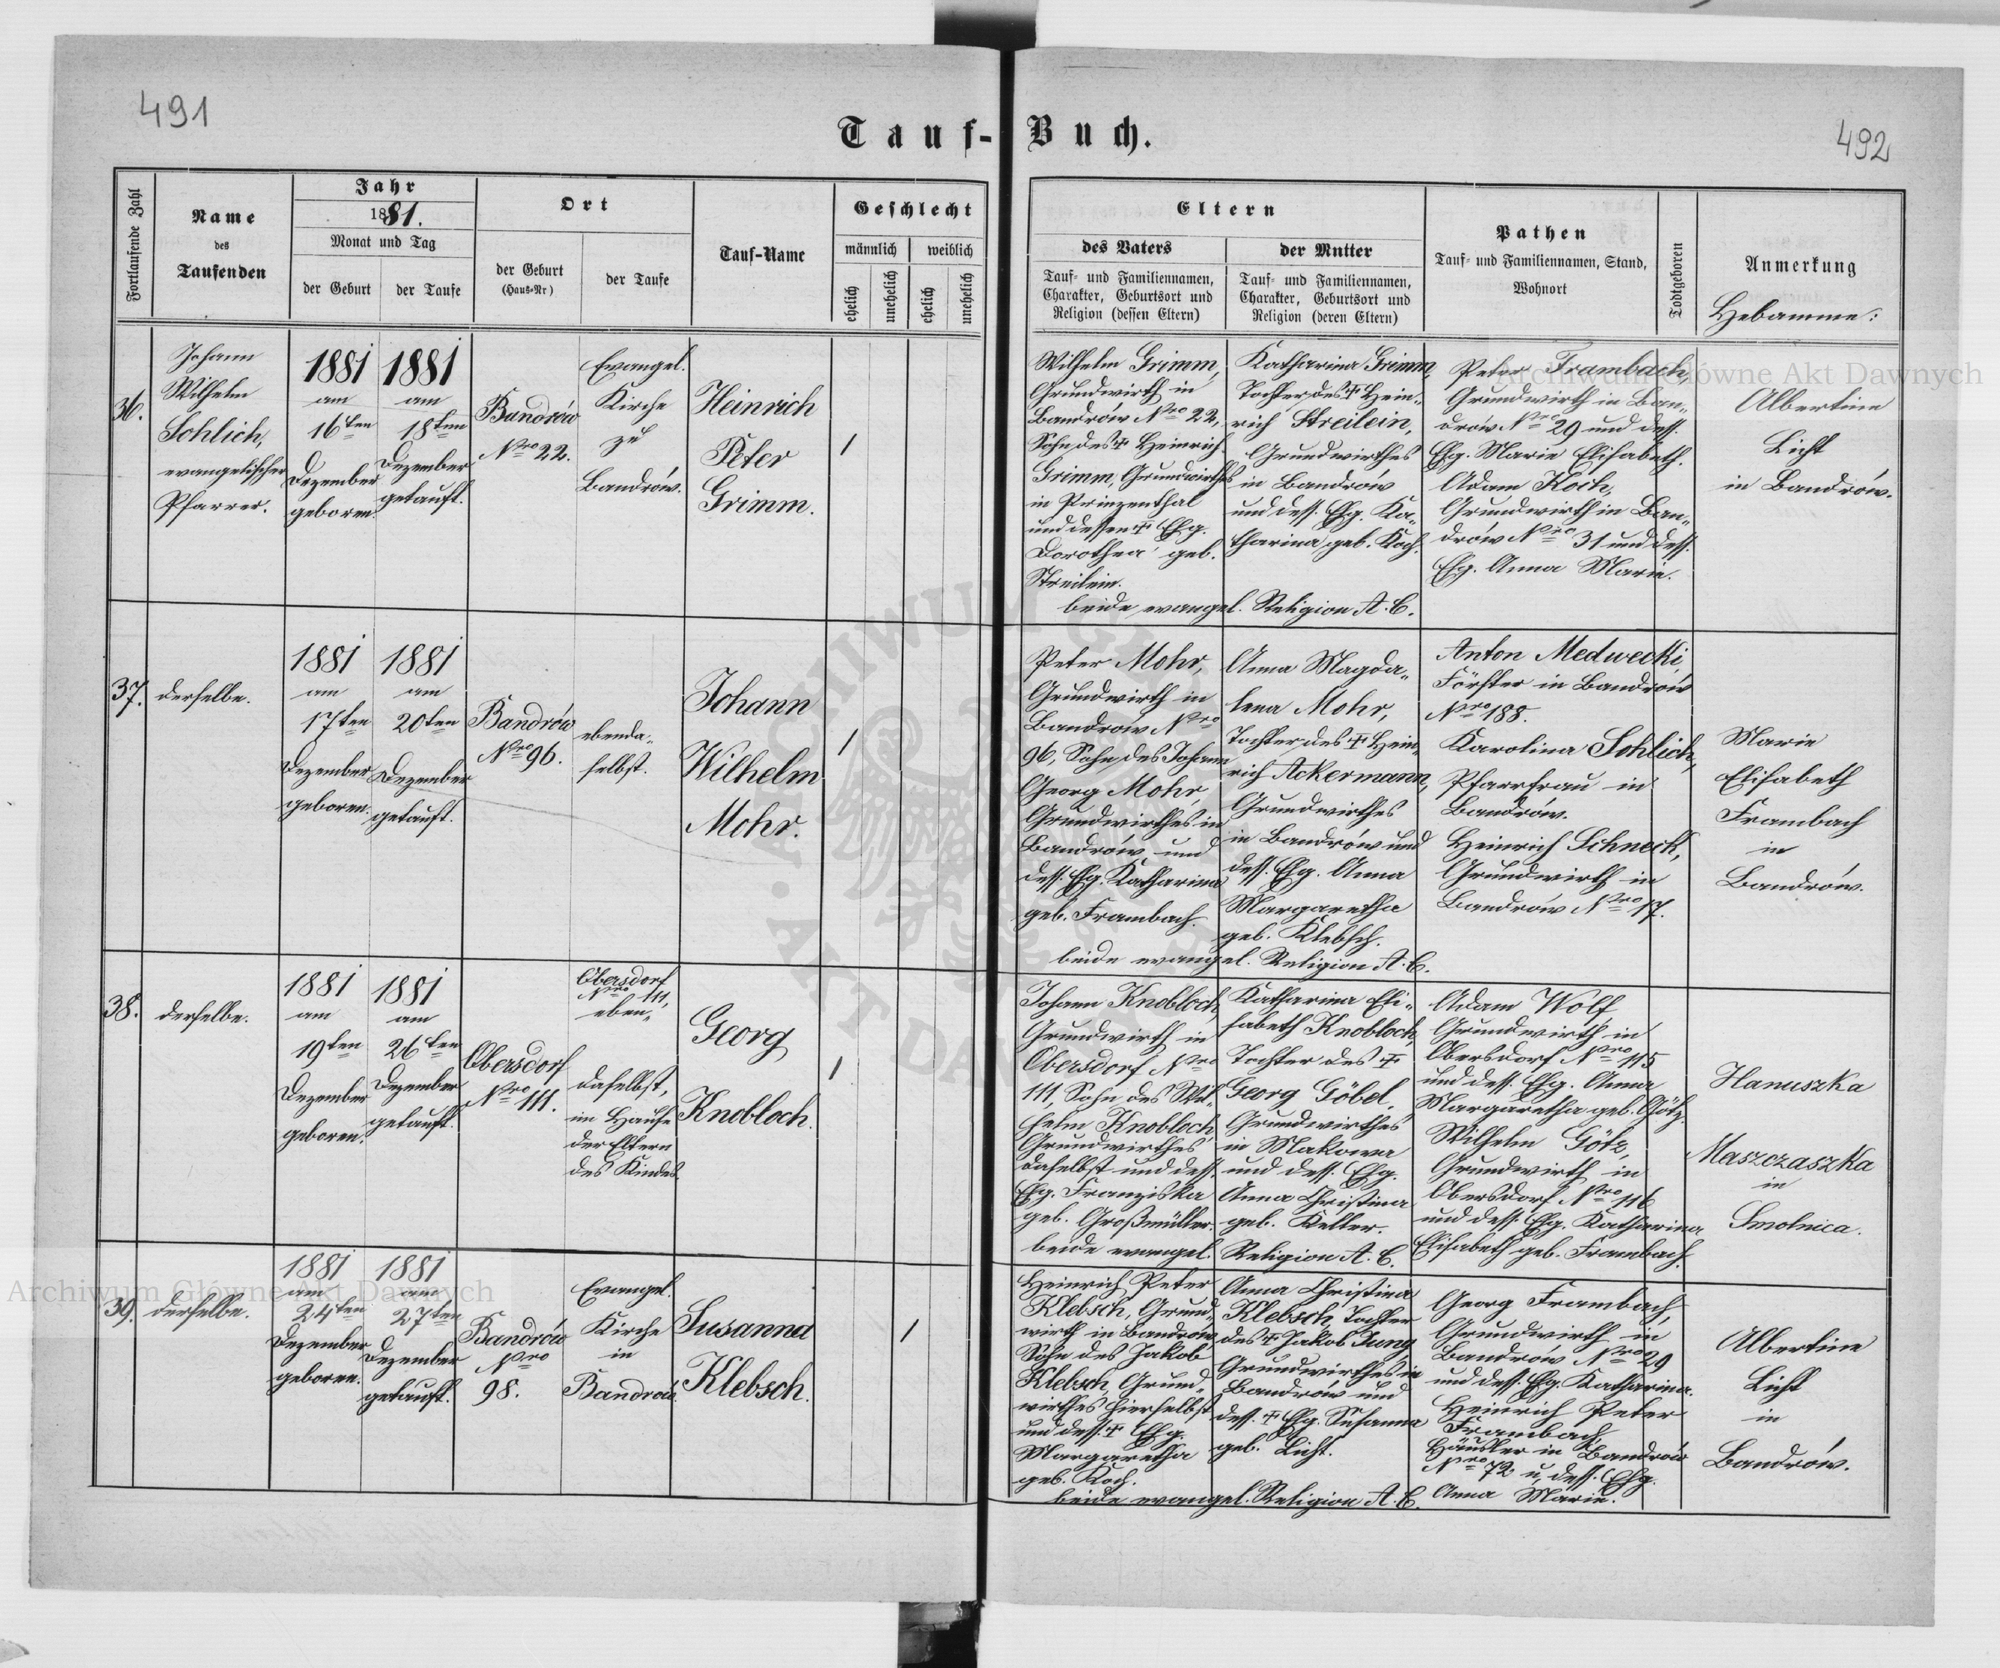 491
Tauf-Buch.
492
Fortlaufende Zahl
Name
des
Taufenden
Jahr
1881.
Monat und Tag
der Geburt
der Taufe
Ort
der Geburt
(Haus-Nr)
der Taufe
Tauf-Name
Geschlecht
männlich
weiblich
ehelich
unehelich
ehelich
unehelich
Eltern
des Vaters
Tauf- und Familiennamen,
Charakter, Geburtsort und
Religion (dessen Eltern)
der Mutter
Tauf- und Familiennamen,
Charakter, Geburtsort und
Religion (deren Eltern)
Pathen
Tauf- und Familiennamen, Stand,
Wohnort
Todtgeboren
Anmerkung
Hebamme:
36.
Johann
Wilhelm
Schlich,
evangelischer
Pfarrer.
1881
am
16ten
Dezember
geboren.
1881
am
18ten
Dezember
getauft.
Bandrów
Nro 22.
Evangel.
Kirche
zu
Bandrów.
Heinrich
Peter
Grimm.
1
Wilhelm Grimm,
Grundwirth in
Bandrów Nro 22,
Sohn des † Heinrich
Grimm, Grundwirthes
in Prinzenthal
und dessen † Ehg.
Dorothea geb.
Streilein.
Katharina Grimm,
Tochter des † Hein-
rich Streilein,
Grundwirthes
in Bandrów
und dess. Ehg. Ka-
tharina geb. Koch.
beide evangel. Religion A. C.
Peter Frambach,
Grundwirth in Ban-
drów Nro 29 und dess.
Ehg. Marie Elisabeth.
Adam Koch,
Grundwirth in Ban-
drów Nro 31 und dess.
Ehg. Anna Marie.
Albertine
Licht
in Bandrów.
37.
derselbe.
1881
am
17ten
Dezember
geboren.
1881
am
20ten
Dezember
getauft.
Bandrów
Nro 96.
ebenda-
selbst.
Johann
Wilhelm
Mohr.
1
Peter Mohr,
Grundwirth in
Bandrów Nro
96, Sohn des Johann
Georg Mohr,
Grundwirthes in
Bandrów und
dess. Ehg. Katharina
geb. Frambach.
Anna Magda-
lena Mohr,
Tochter des † Hein-
rich Ackermann,
Grundwirthes
in Bandrów und
dess. Ehg. Anna
Margaretha
geb. Klebsch.
beide evangel. Religion A. C.
Anton Medwecki,
Förster in Bandrów
Nro 188.
Karolina Schlich,
Pfarrfrau in
Bandrów.
Heinrich Schneck,
Grundwirth in
Bandrów Nro 17.
Marie
Elisabeth
Frambach
in
Bandrów.
38.
derselbe.
1881
am
19ten
Dezember
geboren.
1881
am
26ten
Dezember
getauft.
Obersdorf
Nro 111.
Obersdorf
Nro 111,
eben-
daselbst,
im Hause
der Eltern
des Kindes.
Georg
Knobloch.
1
Johann Knobloch,
Grundwirth in
Obersdorf Nro
111, Sohn des Wil-
helm Knobloch,
Grundwirthes
daselbst und dess.
Ehg. Franziska
geb. Großmüller.
Katharina Eli-
sabeth Knobloch,
Tochter des †
Georg Göbel,
Grundwirthes
in Makowa
und dess. Ehg.
Anna Christina
geb. Keller.
beide evangel. Religion A. C.
Adam Wolf,
Grundwirth in
Obersdorf Nro 115
und dess. Ehg. Anna
Margaretha geb. Götz.
Wilhelm Götz,
Grundwirth in
Obersdorf Nro 116
und dess. Ehg. Katharina
Elisabeth geb. Frambach.
Hanuszka
Maszczaszka
in
Smolnica.
39.
derselbe.
1881
am
24ten
Dezember
geboren.
1881
am
27ten
Dezember
getauft.
Bandrów
Nro
98.
Evangel.
Kirche
in
Bandrów.
Susanna
Klebsch.
1
Heinrich Peter
Klebsch, Grund-
wirth in Bandrów,
Sohn des Jakob
Klebsch, Grund-
wirthes hierselbst
und dess. † Ehg.
Margaretha
geb. Koch.
Anna Christina
Klebsch, Tochter
des † Jakob Jung
Grundwirthes in
Bandrów und
dess. † Ehg. Susanna
geb. Licht.
beide evangel. Religion A. C.
Georg Frambach,
Grundwirth in
Bandrów Nro 29
und dess. Ehg. Katharina.
Heinrich Peter
Frambach,
Häusler in Bandrów
Nro 72 u. dess. Ehg.
Anna Marie.
Albertine
Licht
in
Bandrów.
Archiwum Główne Akt Dawnych
Archiwum Główne Akt Dawnych